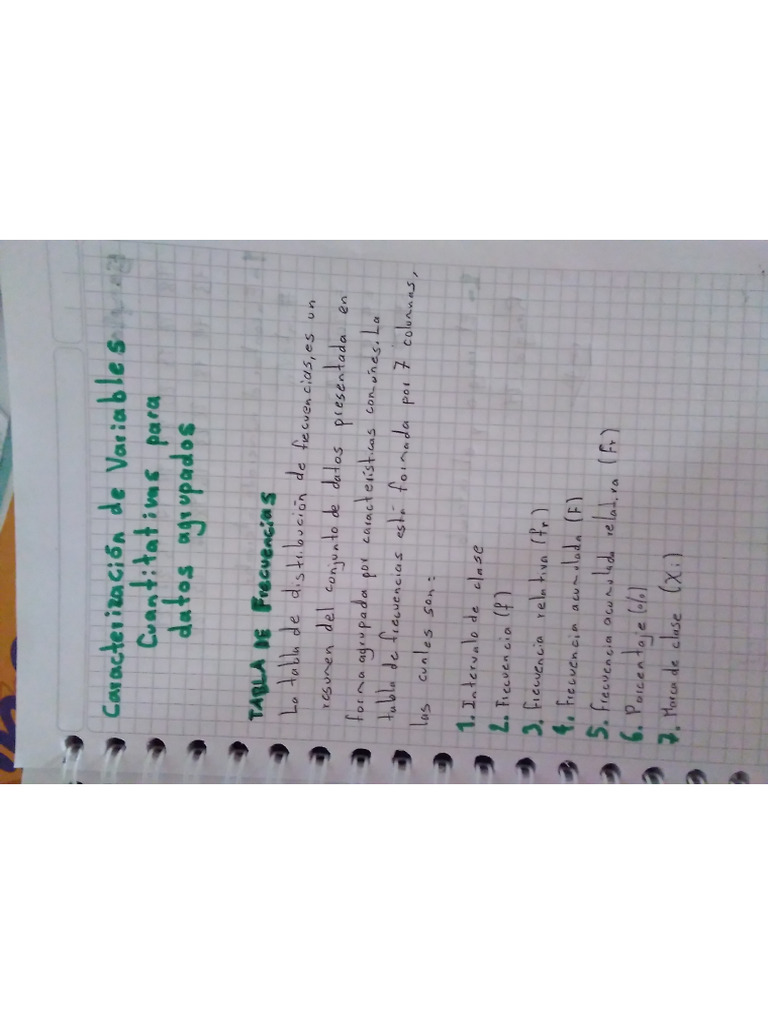 Caracterización de Variables
Cuantitativas para
datos agrupados
TABLA DE Frecuencias
La tabla de distribución de frecuencias, es un
resumen del conjunto de datos presentada en
forma agrupada por características comúnes. La
tabla de frecuencias está formada por 7 columnas,
las cuales son:
1. Intervalo de clase
2. Frecuencia (f)
3. Frecuencia relativa (fr)
4. Frecuencia acumulada (F)
5. Frecuencia acumulada relativa (Fr)
6. Porcentaje (%)
7. Marca de clase (Xi)